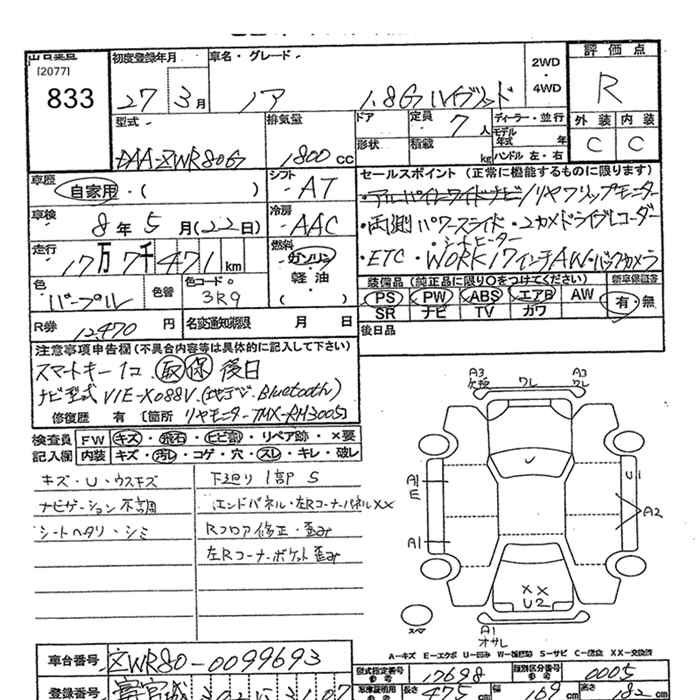 [2077]
833
初度登録年月
27年3月
車名・グレード
ノア 1.8G ハイブリッド
2WD
・
4WD
評価点
R
型式
DAA-ZWR80G
排気量
1800 CC
ドア
形状
定員 7人
積載 kg
ディーラー・並行
モデル年式 年
ハンドル 左・右
外装 内装
C C
車歴
自家用・( )
シフト
AT
車検
8年5月(22日)
冷房
AAC
走行
17万7千471km
燃料
ガソリン
軽油
( )
色
パープル
色替
色コード
3R9
R券
12,470円
名変通知期限 月 日
セールスポイント (正常に機能するものに限ります)
・アルパインワイドナビ/リヤフリップモニター
・両側パワースライド・2カメドライブレコーダー
・シートヒーター
・ETC・WORK17インチAW・バックカメラ
装備品(純正品に限り○をつけてください)
新車保証書
PS PW ABS エアB AW
有・無
SR ナビ TV カワ
後日品
注意事項申告欄(不具合内容等は具体的に記入して下さい)
スマートキー1コ 取 保 後日
ナビ型式 VIE-X088V(地デジ.Bluetooth)
修復歴 有 [箇所 リヤモニターTMX-RM3005]
検査員
記入欄
FW キズ・飛石・ヒビ割・リペア跡・×要
内装 キズ・汚レ・コゲ・穴・スレ・キレ・破レ
キズ・U・ウスキズ
ナビゲーション不調
シートヘタリ・シミ
下廻り1部S
エンドパネル・左RコーナーパネルXX
Rフロア修正・歪み
左Rコーナーポケット歪み
A3 欠損
ワレ
A3 ワレ
A1
E
A1
U1
A2
XX
U2
スマ
A1
オサレ
A-キズ E-エクボ U-凹み W-補修跡 S-サビ C-腐食 XX-交換済
車台番号 ZWR80-0099693
型式指定番号 参考 17698
類別区分番号 参考 0005
登録番号
長さ 475 cm
幅 169 cm
高さ 182 cm